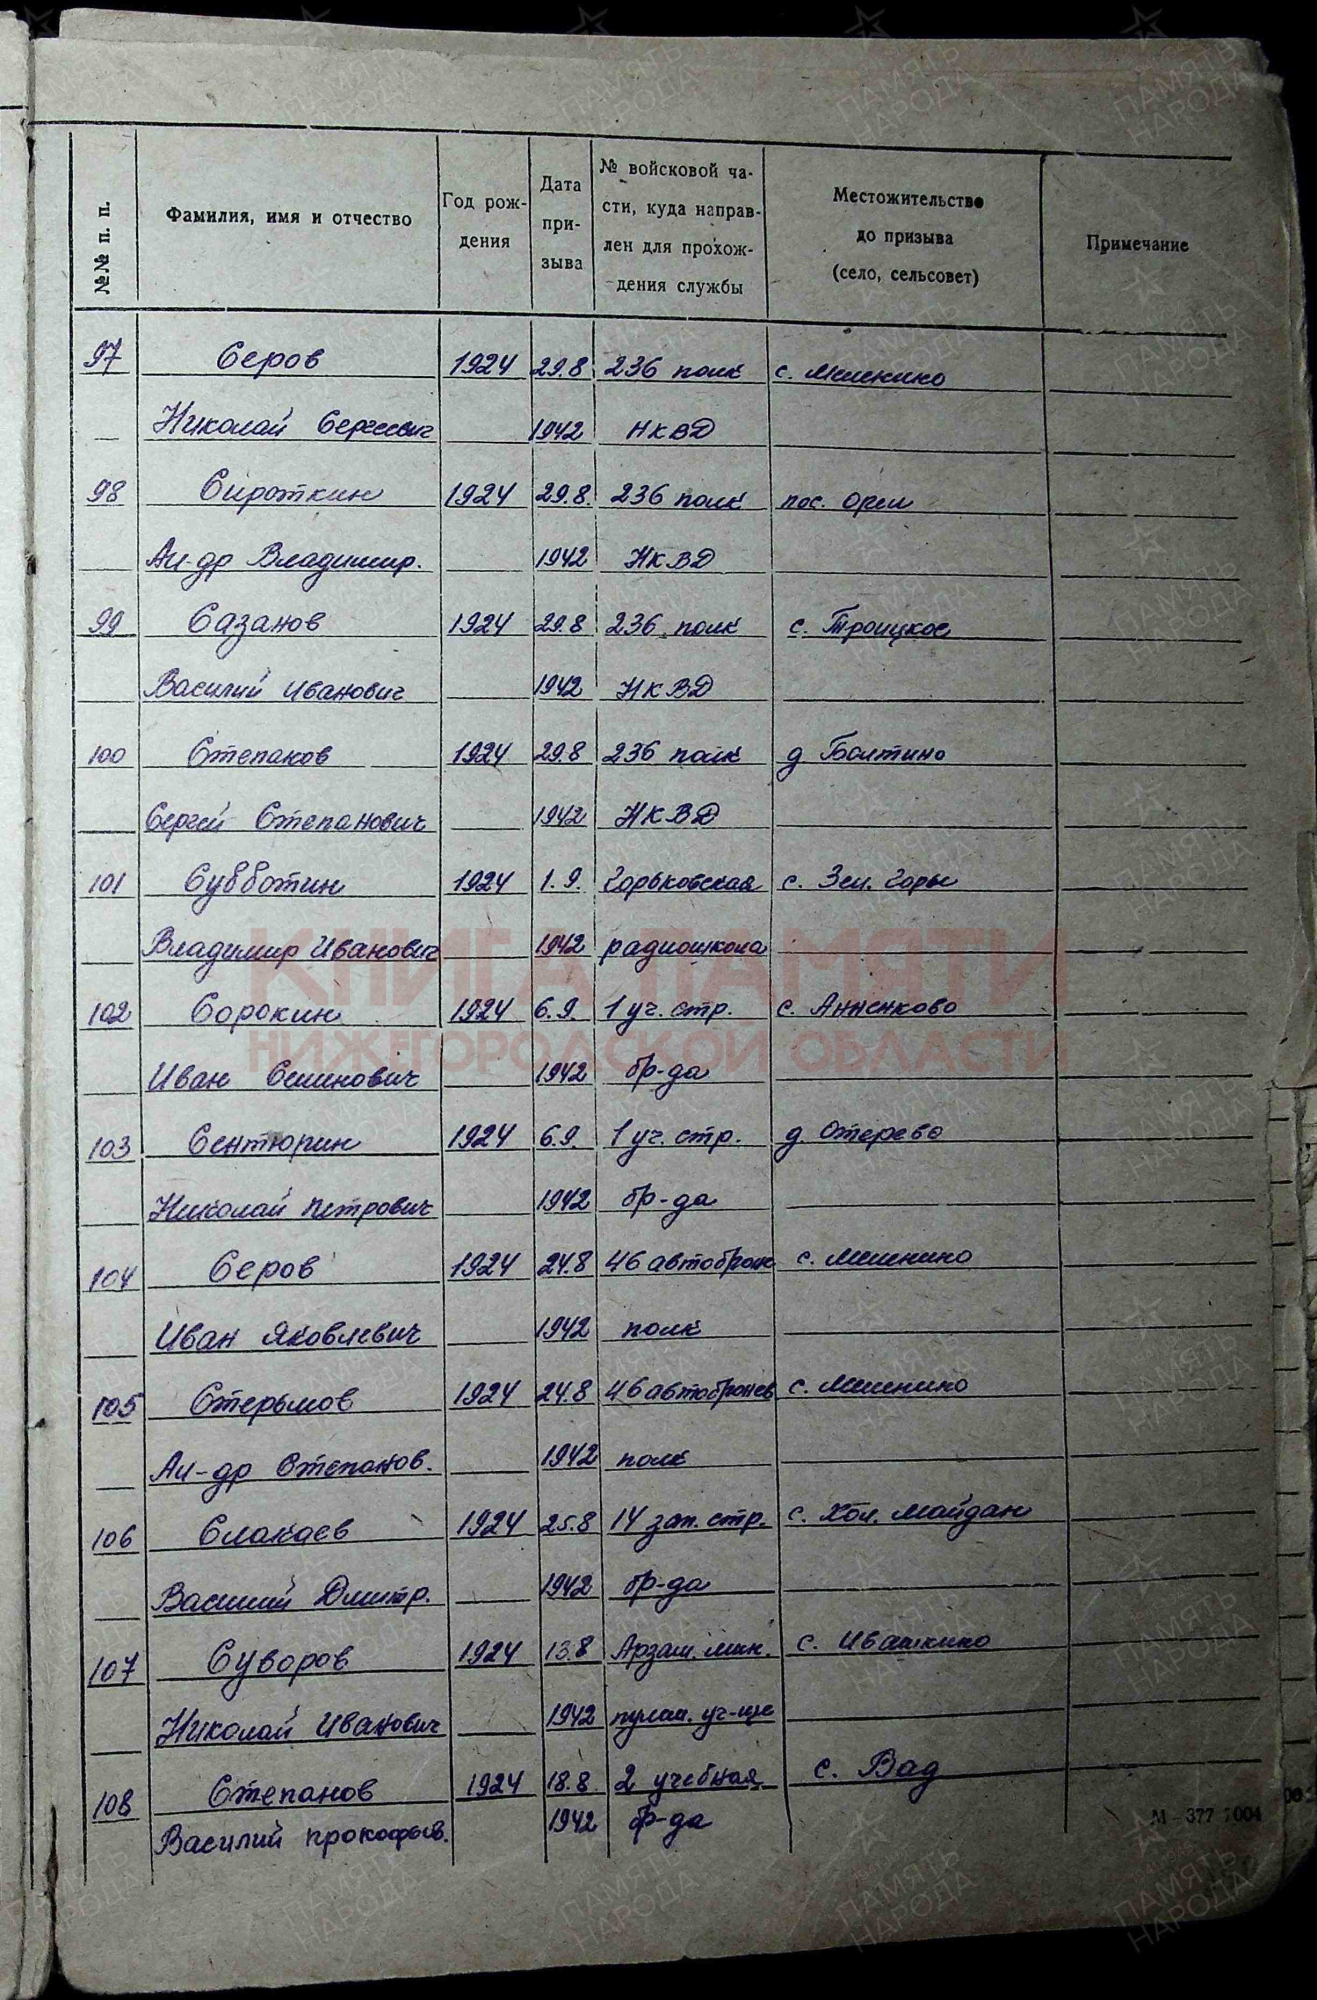 №№ п. п.
Фамилия, имя и отчество
Год рож-
дения
Дата
при-
зыва
№ войсковой ча-
сти, куда направ-
лен для прохож-
дения службы
Местожительство
до призыва
(село, сельсовет)
Примечание
97 Серов 1924 29.8 236 полк с. Мишнино
Николай Сергеевич 1942 НКВД
98 Сироткин 1924 29.8. 236 полк пос.
Ал-др Владимир. 1942 НКВД
99 Сазанов 1924 29.8 236 полк с. Троицкое
Василий Иванович 1942 НКВД
100 Степанов 1924 29.8 236 полк д Болтино
Сергей Степанович 1942 НКВД
101 Субботин 1924 1.9. Горьковская с. Зел. Горы
Владимир Иванович 1942 радиошкола
102 Сорокин 1924 6.9. 1 уч. стр. с. Анненково
Иван Семинович 1942 бр-да
103 Сентюрин 1924 6.9. 1 уч. стр. д. Отерево
Николай Петрович 1942 бр-да
104 Серов 1924 24.8 46 автоброне с. Мишнино
Иван Яковлевич 1942 полк
105 Стерьмов 1924 24.8 46 автобронев с. Мишнино
Ал-др Степанов. 1942 полк
106 Слакаев 1924 25.8 14 зап. стр. с. Хол. Майдан
Василий Дмитр. 1942 бр-да
107 Суворов 1924 13.8 Арзам. мин. с. Ивашкино
Николай Иванович 1942 пулем. уч-ще
108 Степанов 1924 18.8. 2 учебная с. Вад
Василий Прокофьев. 1942 бр-да
КНИГА ПАМЯТИ
НИЖЕГОРОДСКОЙ ОБЛАСТИ
ПАМЯТЬ
НАРОДА